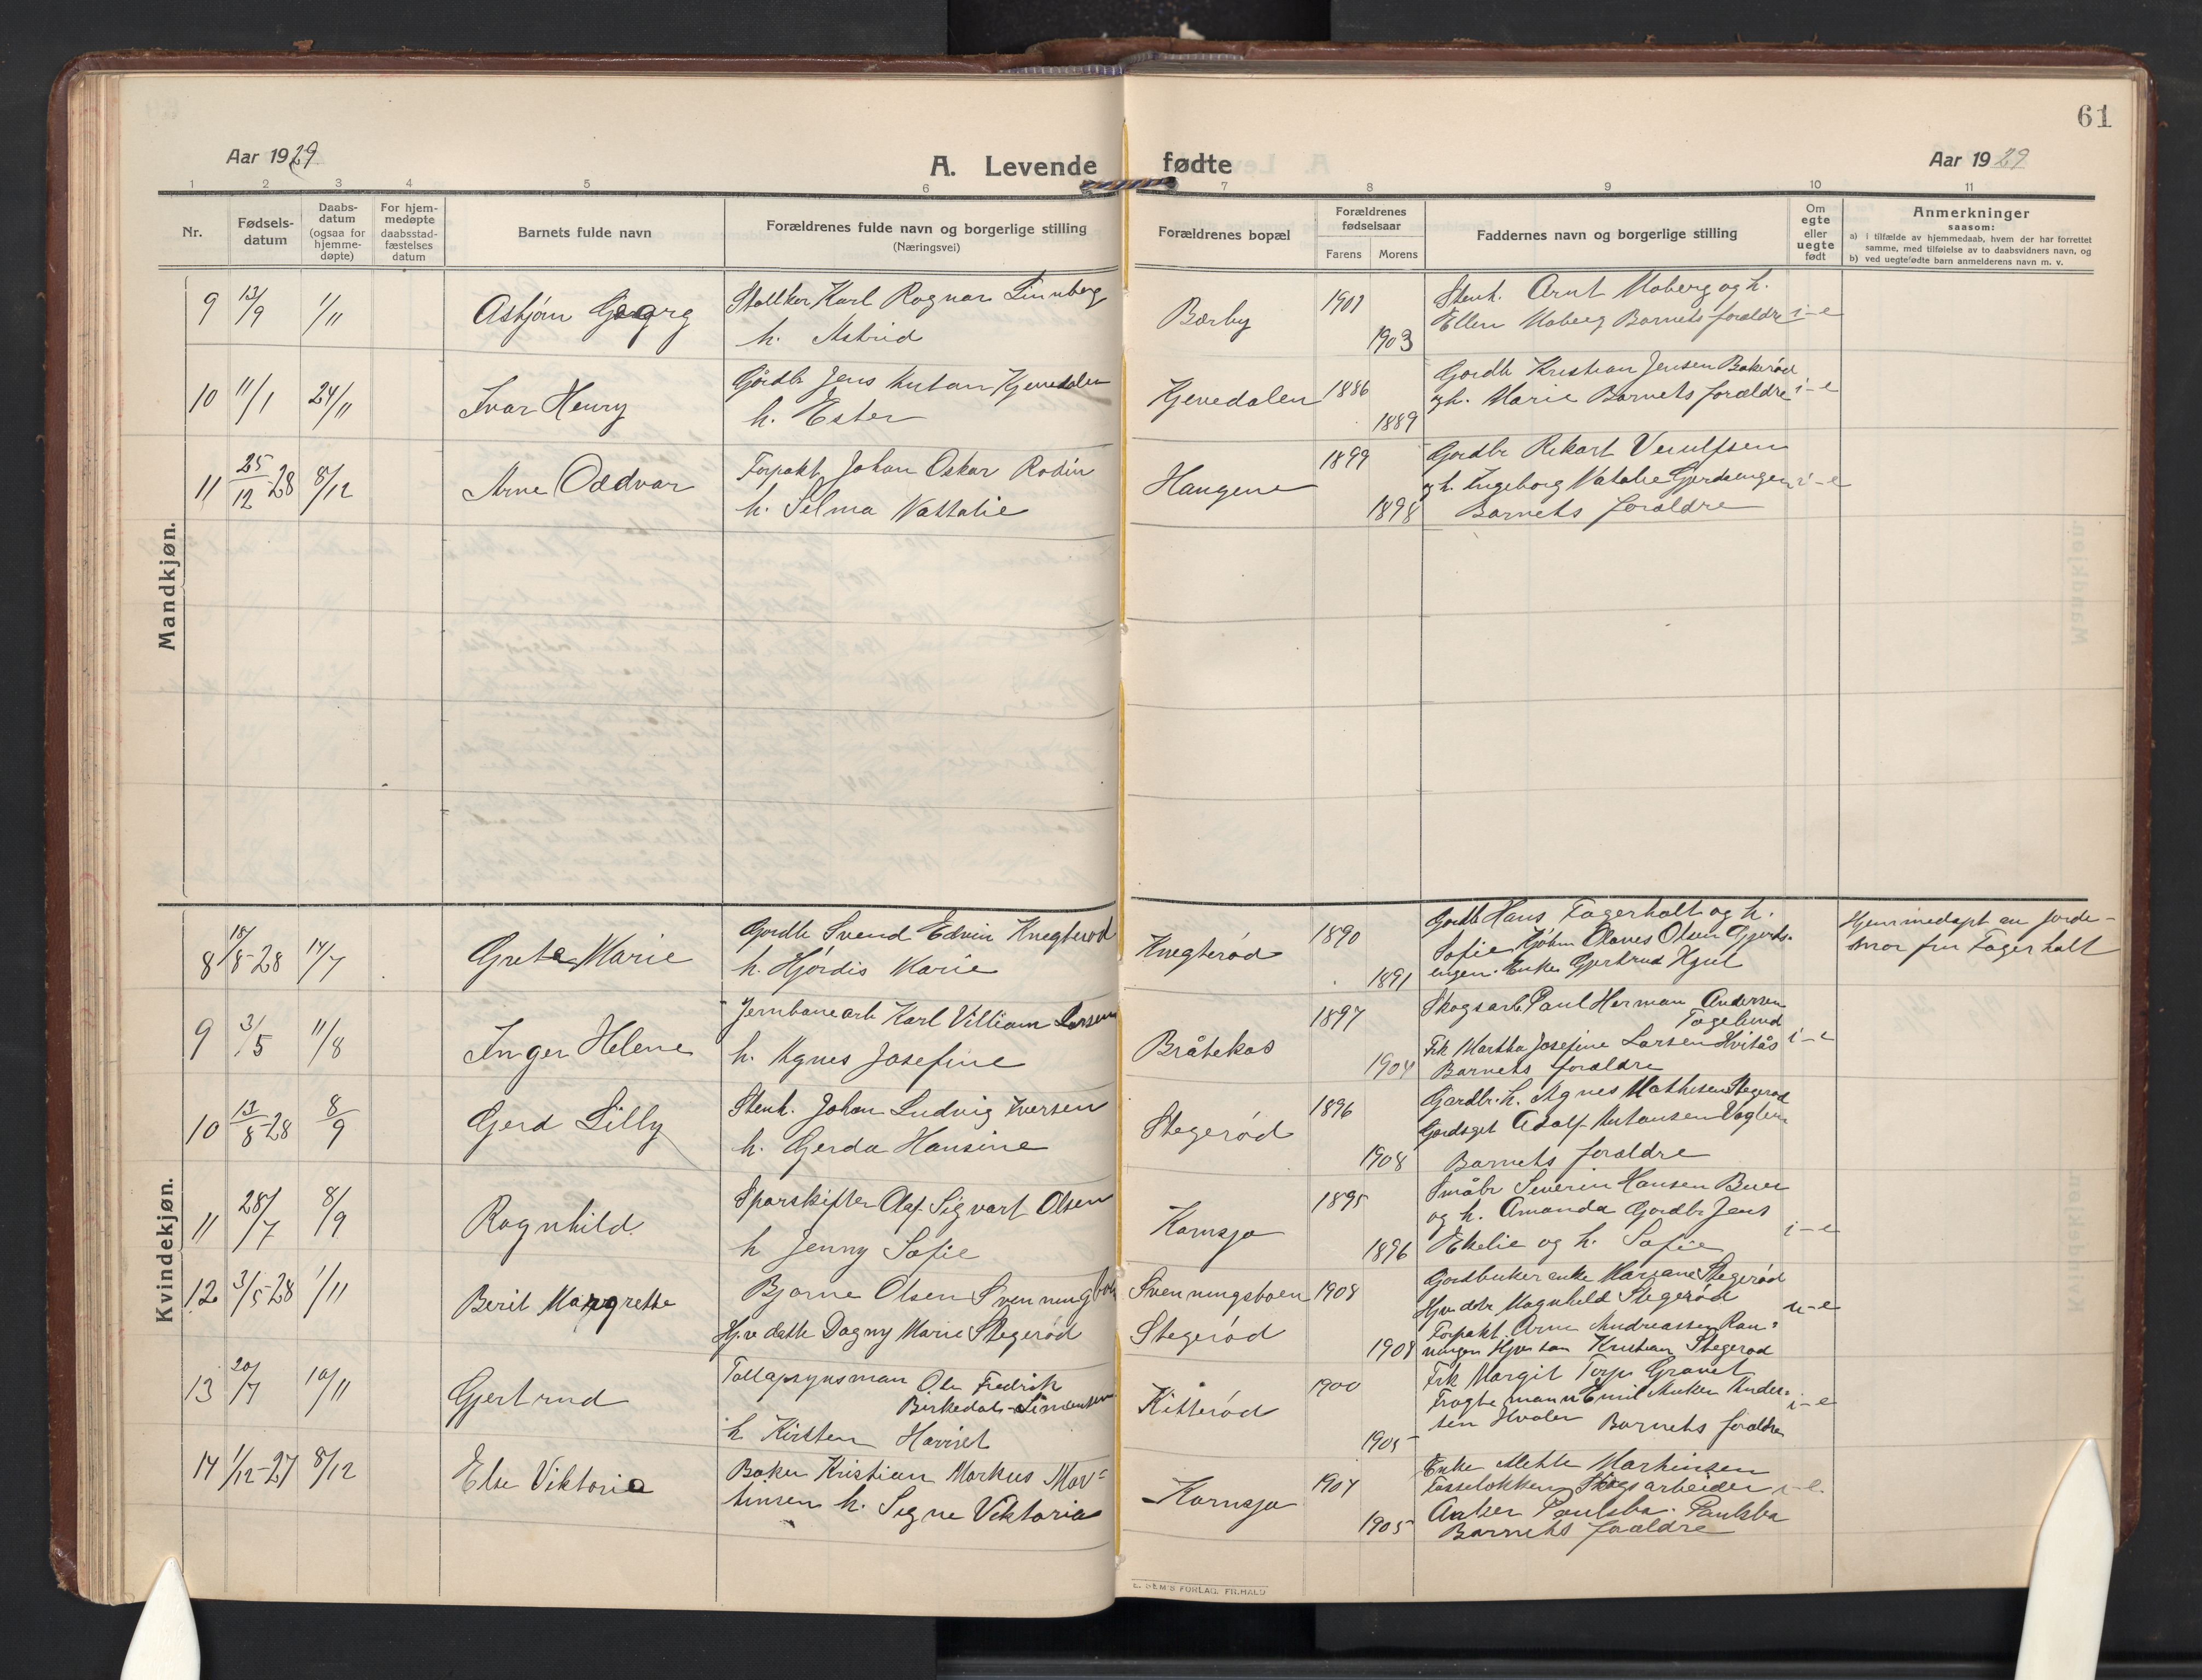 61
Aar 1929
A. Levende fødte
Aar 1929
1 2 3 4 5 6 7 8 9 10 11
Nr.
Fødsels-
datum
Daabs-
datum
(ogsaa for
hjemme-
døpte)
For hjem-
medøpte
daabsstad-
fæstelses
datum
Barnets fulde navn
Forældrenes fulde navn og borgerlige stilling
(Næringsvei)
Forældrenes bopæl
Forældrenes
fødselsaar
Farens Morens
Faddernes navn og borgerlige stilling
Om
egte
eller
uegte
født
Anmerkninger
saasom:
a) i tilfælde av hjemmedaab, hvem der har forrettet
samme, med tilføielse av to daabsvidners navn, og
b) ved uegtefødte barn anmelderens navn m. v.
Mandkjøn.
9 13/9 1/11 Asbjørn Georg Karl Ragnar Linnberg
h. Astrid
Bærby 1901 1903
Stenh. Arnt Moberg og h.
Ellen Moberg Barnets forældre i-e
10 11/1 24/11 Ivar Henry Gårdbr Jens Anton Kjenedalen
h. Ester
Kjenedalen 1886 1889
Gårdbr Kristian Jensen Bakerød
og h. Marie Barnets forældre i-e
11 25/12-28 8/12 Arne Oddvar Forpakt. Johan Oskar Rodin
h. Selma Nattalie
Haugene 1899 1898
Gårdbr Rikart
og h. Ingeborg Natalie Gjerdeengen i-e
Barnets forældre
Kvindekjøn.
8 18/8-28 14/7 Grete Marie Gårdbr Svend Edvin Knegterød
h. Hjørdis Marie
Knegterød 1890 1891
Gårdbr Hans Fagerholt og h.
Sofie Olaves Olsen Gjerds-
engen. Enke Gjertrud
Hjemmedøpt av jorde-
mor fru Fagerholt
9 3/5 11/8 Inger Helene Jernbanearb Karl Villiam Larsen
h. Agnes Josefine
Bråtekas 1897 1904
Skogsarb Paul Herman Andersen
Frk Martha Josefine Larsen Hvitås i-e
Barnets forældre
10 13/8-28 8/9 Gerd Lilly Stenh. Johan Ludvig Iversen
h. Gerda Hansine
Stegerød 1896 1908
Gårdbr. h. Agnes Mathisen Stegerød
Adolf Antonsen
Barnets forældre
11 28/7 8/9 Ragnhild Sporskifter Olaf Sigvart Olsen
h Jenny Sofie
Kornsjø 1895 1896
Småbr Severin Hansen Buer
og h. Amanda Gårdbr Jens
og h. Sofie i-e
12 3/5-28 1/11 Berit Margrethe Bjarne Olsen Svenningsboen
Hjv datte Dagny Marie Stegerød
Svenningsboen 1908
Stegerød 1908
Gårdbruker enke Marjane Stegerød
Hjv dtr Magnhild Stegerød u-e
Forpakt. Arne Andreassen Ran-
ningen Hjv søn Kristian Stegerød
13 20/7 10/11 Gjertrud Tollopsynsman Ole Fredrik
Birkedal-Simensen
h Kirsten Harriet
Kitterød 1900 1905
Frk Margit Torp
Emil Anker Ander-
sen Hvaler Barnets forældre i-e
14 1/12-27 8/12 Else Viktoria Baker Kristian Markus Mar-
tinsen h. Signe Viktoria
Kornsjø 1904 1905
Enke Mathilde Martinsen
Fosseløkken Skogsarbeider i-e.
Paulsbo. Paulsbo
Barnets forældre
E. SEM'S FORLAG, FR.HALD